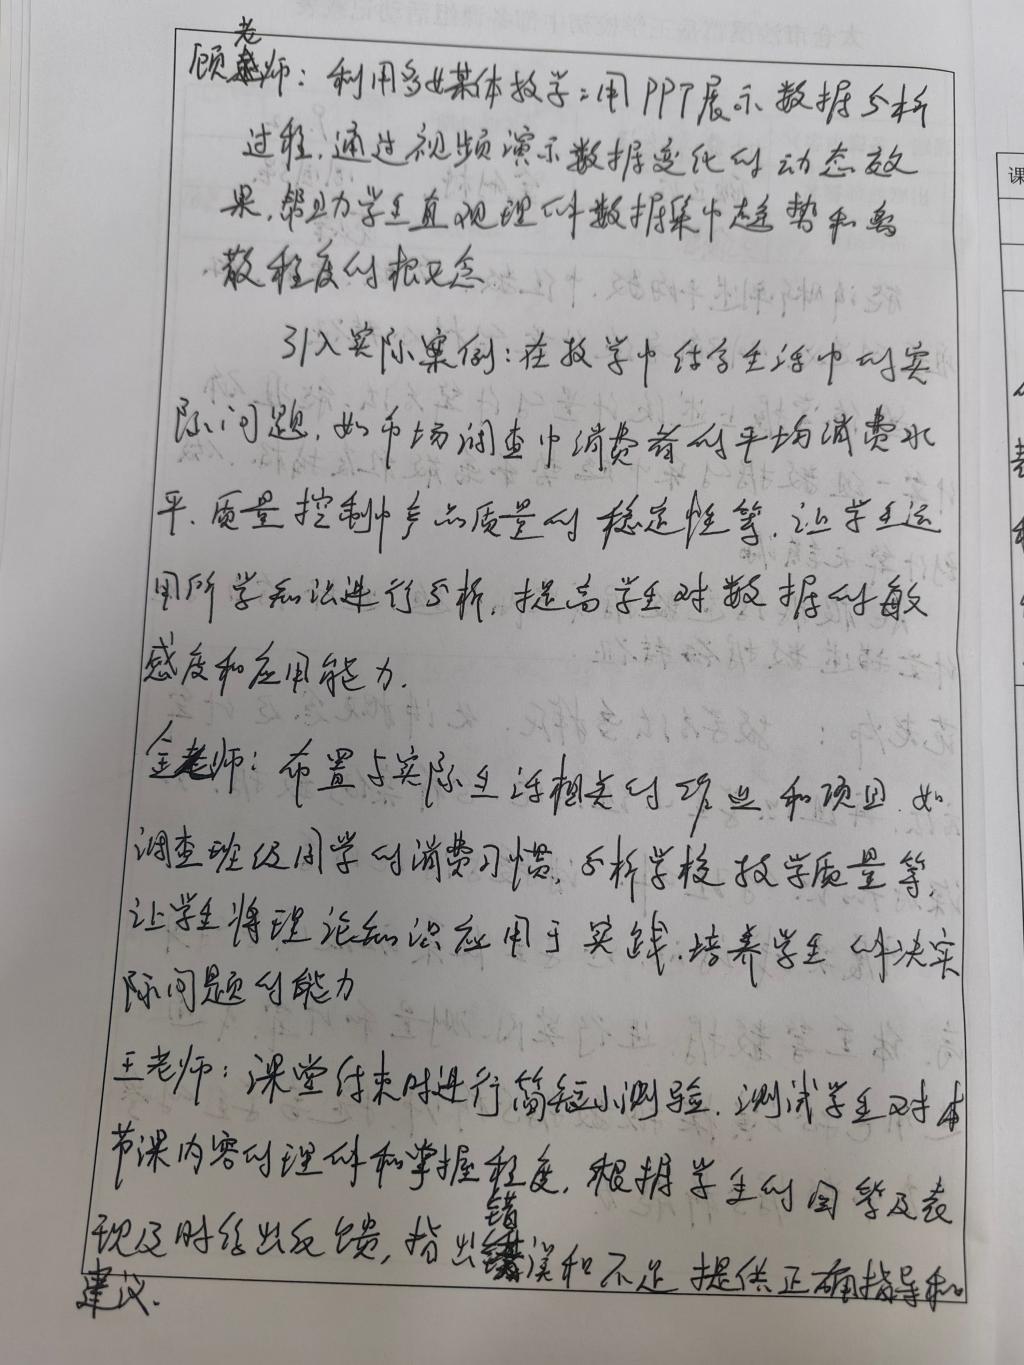 顾老师：利用多媒体教学：用PPT展示数据分析
过程，通过视频演示数据变化的动态效
果，帮助学生直观理解数据集中趋势和离
散程度的概念
引入实际案例：在教学中结合生活中的实
际问题，如市场调查中消费者的平均消费水
平、质量控制中产品质量的稳定性等，让学生运
用所学知识进行分析，提高学生对数据的敏
感度和应用能力.
金老师：布置与实际生活相关的作业和项目，如
调查班级同学的消费习惯，分析学校教学质量等，
让学生将理论知识应用于实践，培养学生解决实
际问题的能力
王老师：课堂结束时进行简短小测验，测试学生对本
节课内容的理解和掌握程度，根据学生的回答及表
现及时给出反馈，指出错误和不足提供正确指导和
建议.
课